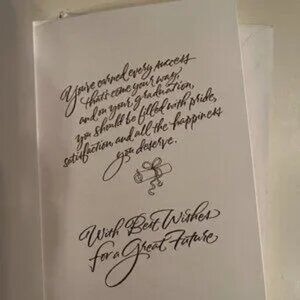 You've earned every success
that's come your way,
and on your graduation,
you should be filled with pride,
satisfaction, and all the happiness
you deserve.
With Best Wishes
for a Great Future